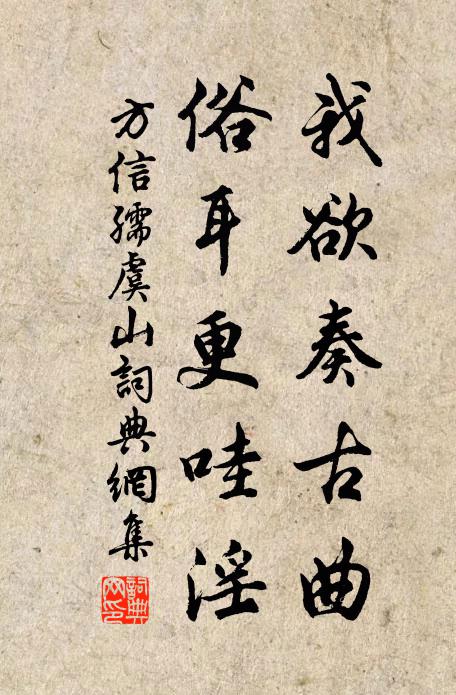 我欲奏古曲
俗耳更哇淫
方信孺虞山詞典網集
詞典網印